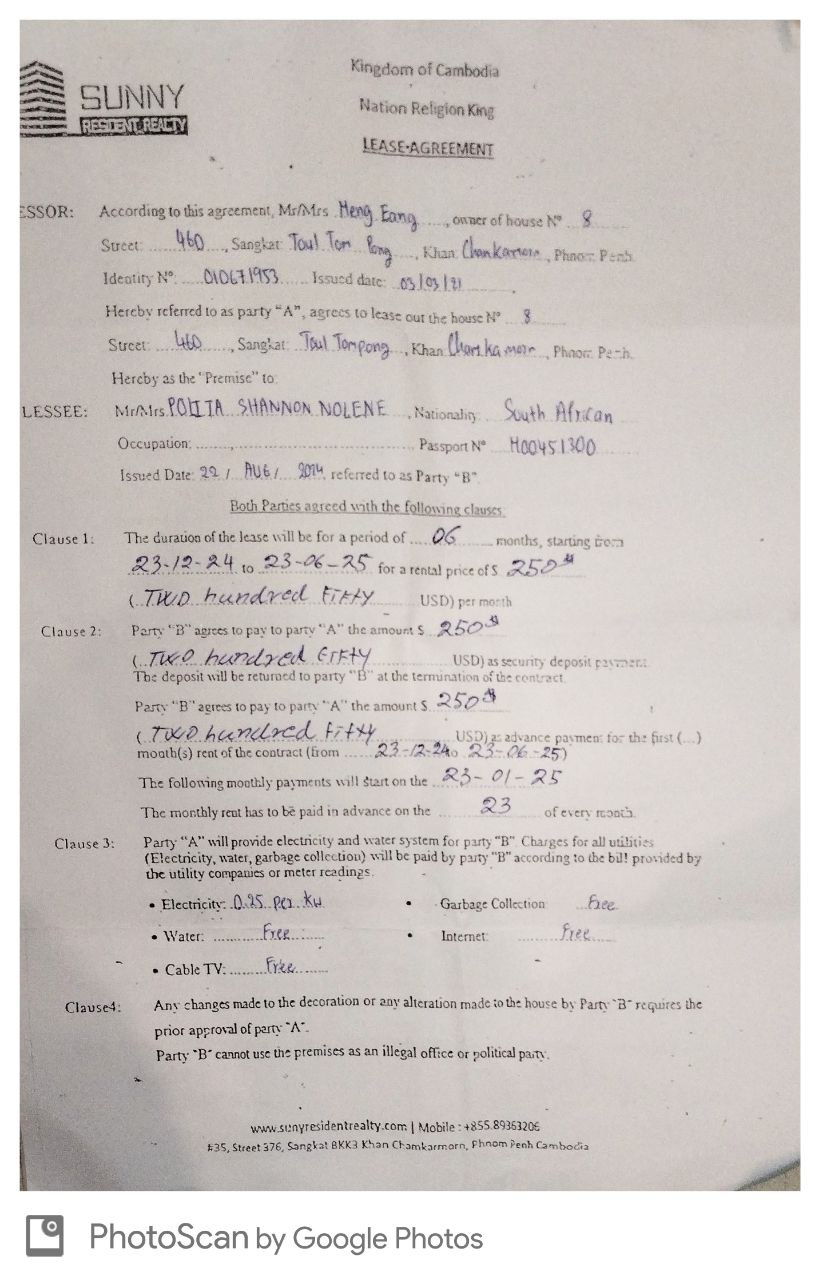 SUNNY
RESIDENT REALTY
Kingdom of Cambodia
Nation Religion King
LEASE-AGREEMENT
ESSOR: According to this agreement, Mr/Mrs Heng Eang ...., owner of house Nº 8
Street: ......460....., Sangkat: Toul Tom Pong ...., Khan: Chamkamorn, Phnom Penh.
Identity Nº: .....010671953...... Issued date: ..03/03/21
Hereby referred to as party "A", agrees to lease out the house Nº 8
Street: ....460......, Sangkat: Toul Tompong ..., Khan Chamkamorn, Phnom Penh.
Hereby as the "Premise" to:
LESSEE: Mr/Mrs POLITA SHANNON NOLENE, Nationality: South African
Occupation: ........,................................... Passport Nº M00451300
Issued Date: 22 / AUG / 2014, referred to as Party "B".
Both Parties agreed with the following clauses:
Clause 1: The duration of the lease will be for a period of ....06...... months, starting from
23-12-24 to 23-06-25 for a rental price of $ 250$
(..TWO hundred FIFTY USD) per month
Clause 2: Party "B" agrees to pay to party "A" the amount $ 250$
(..TWO hundred FIFTY USD) as security deposit payment.
The deposit will be returned to party "B" at the termination of the contract.
Party "B" agrees to pay to party "A" the amount $ 250$
( TWO hundred FIFTY USD) as advance payment for the first (...)
month(s) rent of the contract (from ......23-12-24to 23-06-25)
The following monthly payments will start on the 23-01-25
The monthly rent has to be paid in advance on the 23 of every month.
Clause 3: Party "A" will provide electricity and water system for party "B". Charges for all utilities
(Electricity, water, garbage collection) will be paid by party "B" according to the bill provided by
the utility companies or meter readings.
• Electricity: 0.25 per kw • Garbage Collection: Free
• Water: ............Free........ • Internet: ...........Free......
• Cable TV: .........Free........
Clause4: Any changes made to the decoration or any alteration made to the house by Party "B" requires the
prior approval of party "A".
Party "B" cannot use the premises as an illegal office or political party.
www.sunyresidentrealty.com | Mobile : +855.89363206
#35, Street 376, Sangkat BKK3 Khan Chamkarmorn, Phnom Penh Cambodia
PhotoScan by Google Photos